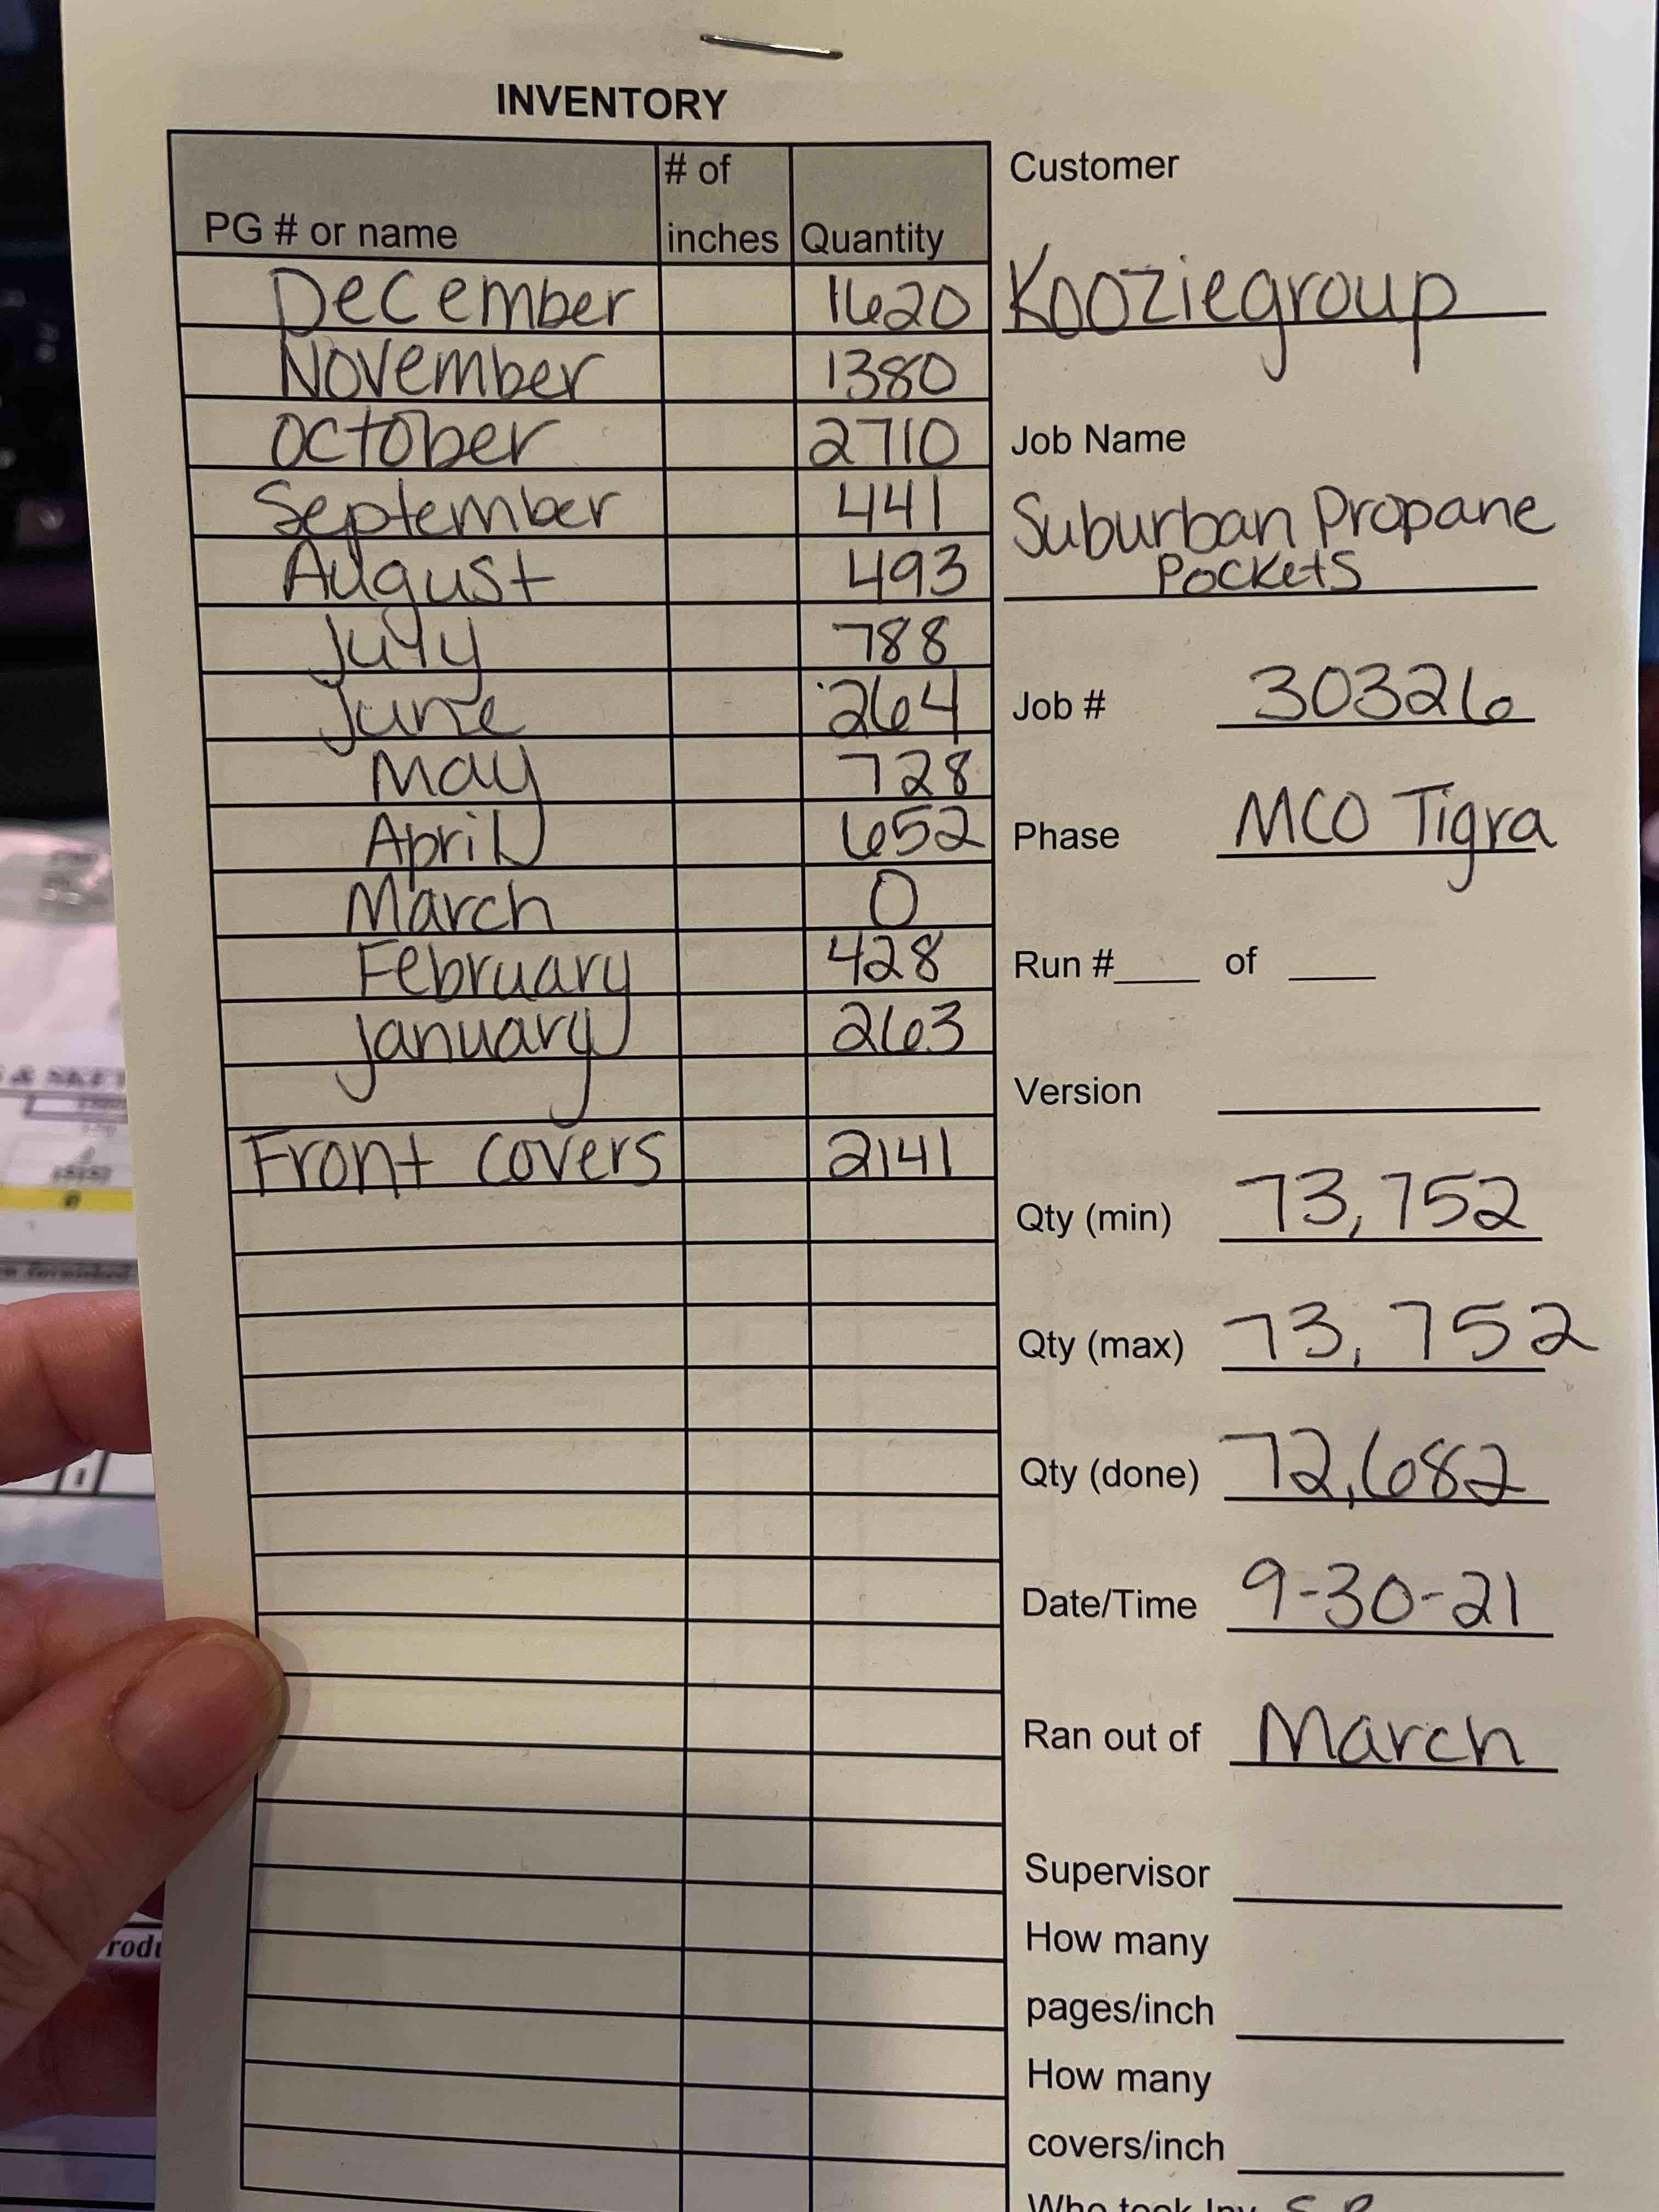 INVENTORY
PG # or name # of inches Quantity
December 1620
November 1380
October 2710
September 441
August 493
July 788
June 264
May 728
April 652
March 0
February 428
january 263
Front covers 2141
Customer
Kooziegroup
Job Name
Suburban Propane
Pockets
Job # 30326
Phase MCO Tigra
Run #____ of ____
Version
Qty (min) 73,752
Qty (max) 73,752
Qty (done) 72,682
Date/Time 9-30-21
Ran out of March
Supervisor
How many
pages/inch
How many
covers/inch
Who took Inv